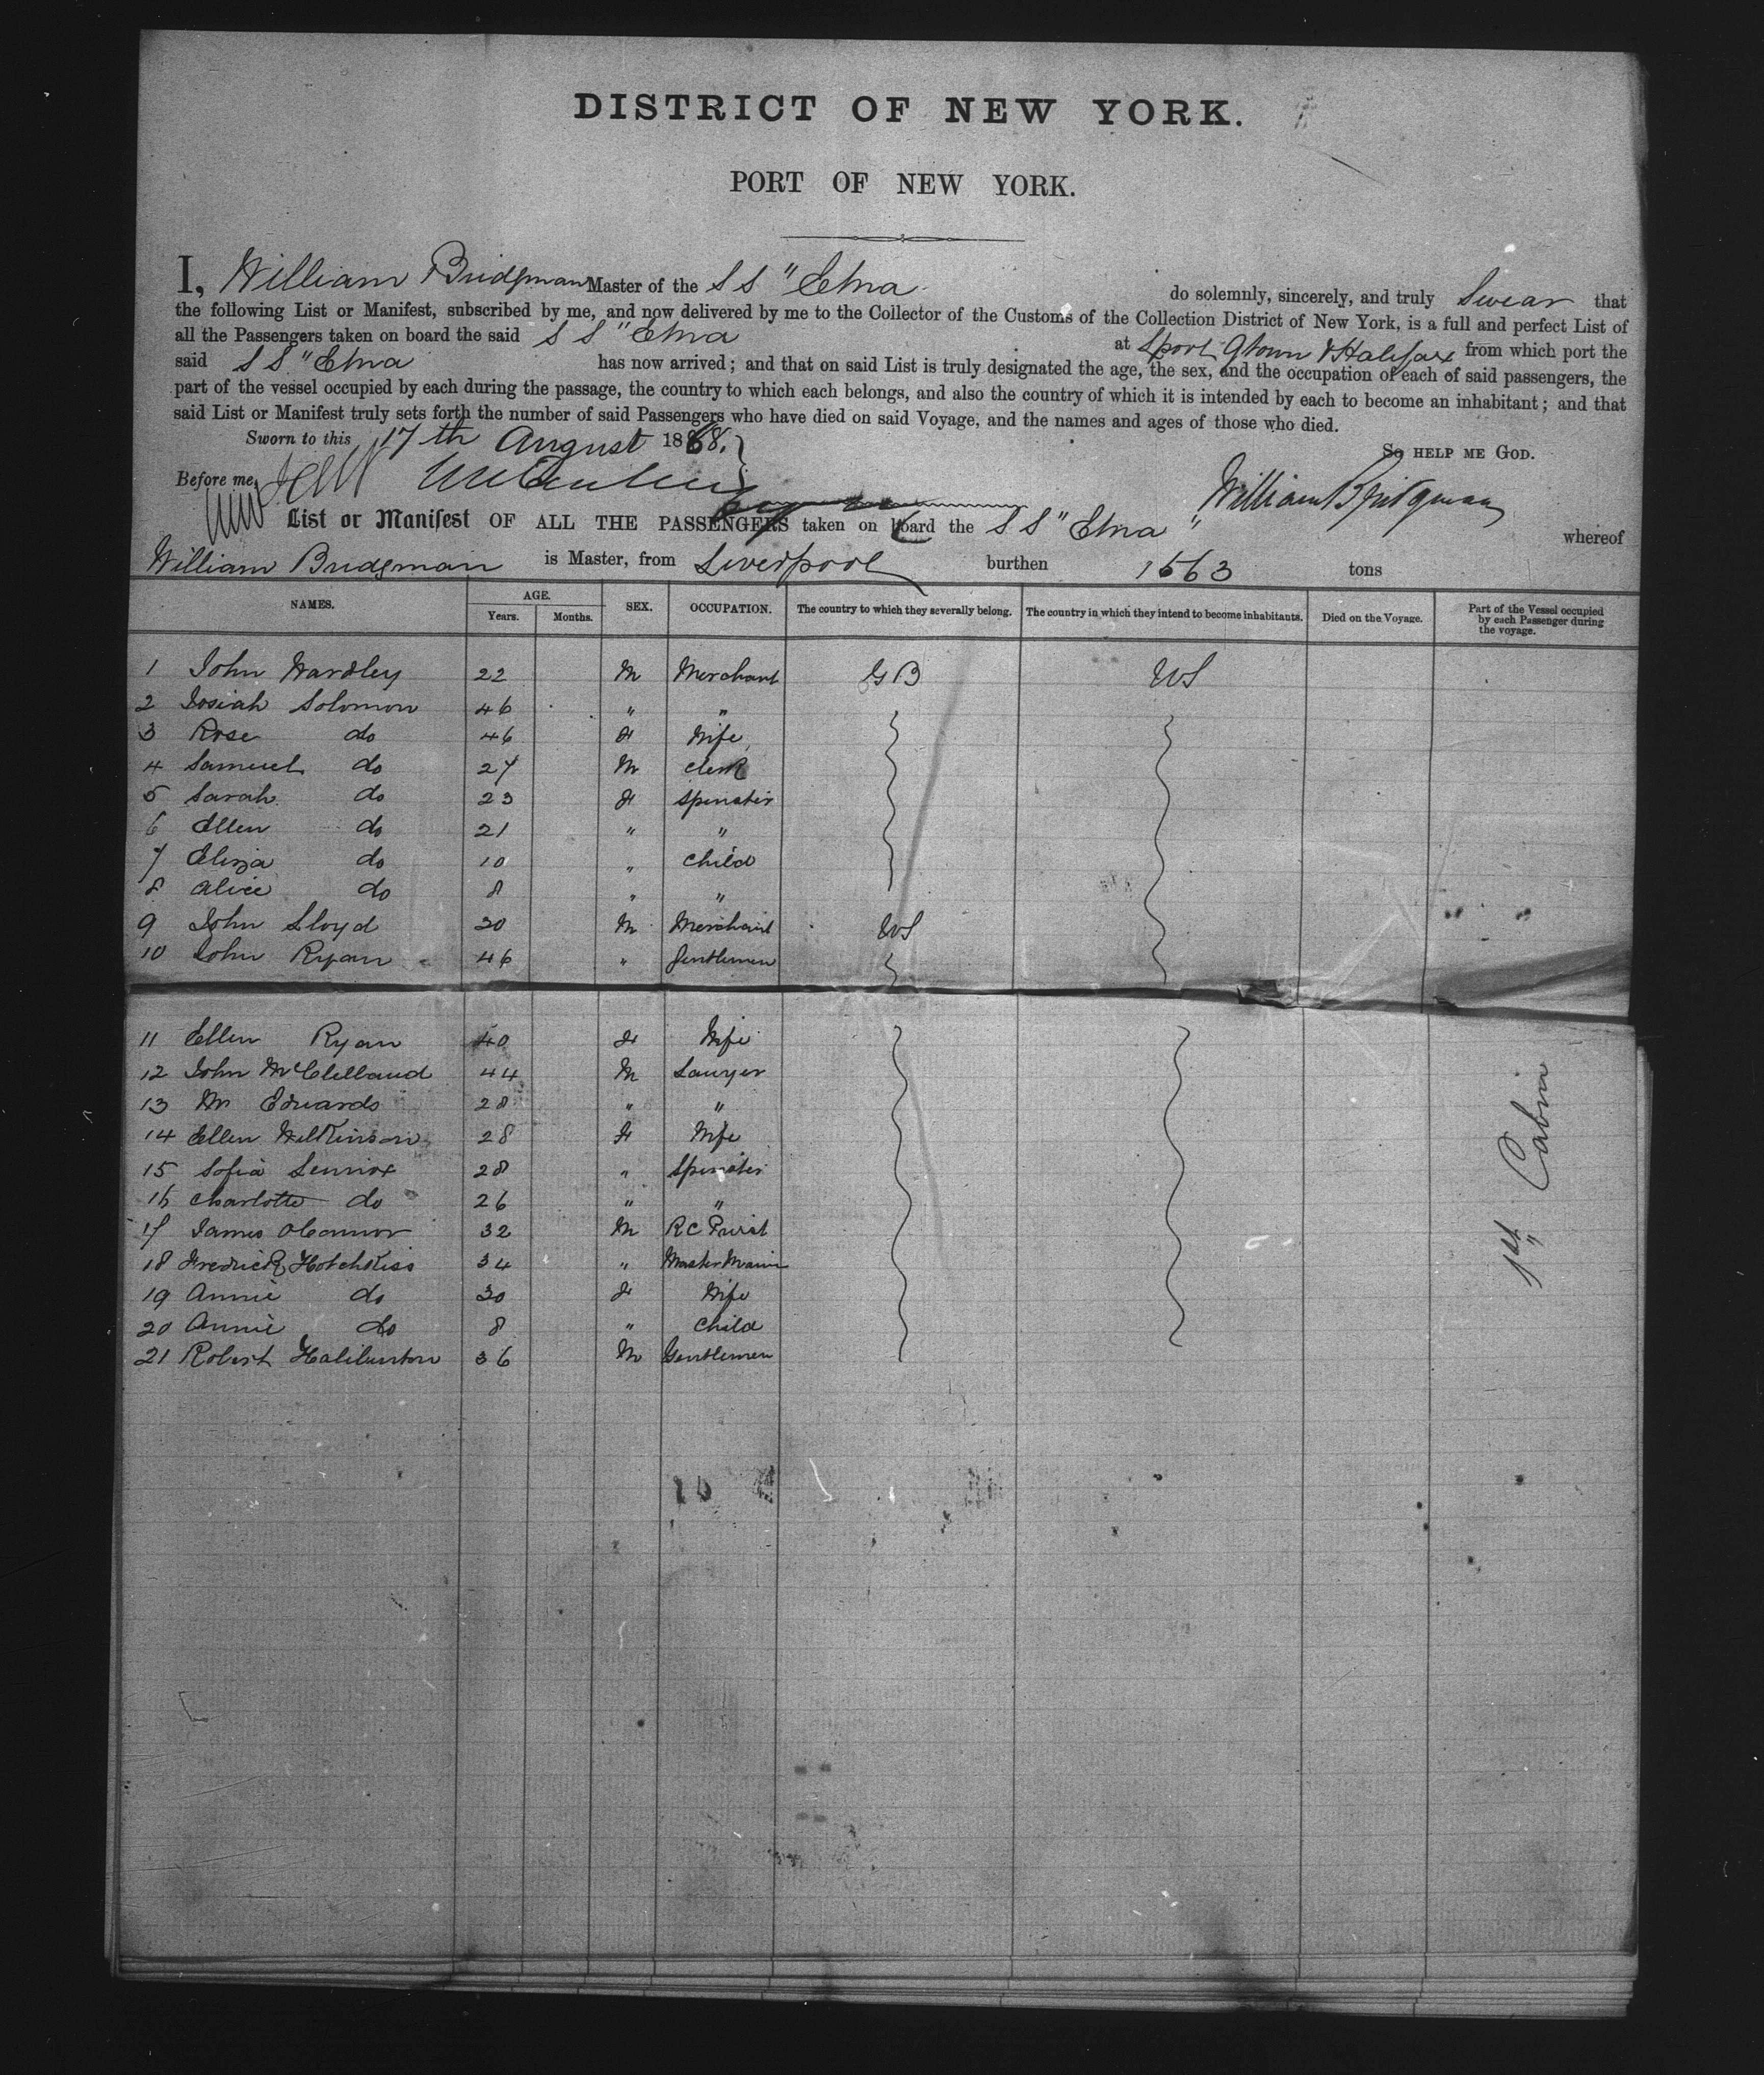 DISTRICT OF NEW YORK.
PORT OF NEW YORK.
I, William Bridgman Master of the S S " Etna do solemnly, sincerely, and truly Swear that
the following List or Manifest, subscribed by me, and now delivered by me to the Collector of the Customs of the Collection District of New York, is a full and perfect List of
all the Passengers taken on board the said S S " Etna at Lpool Qtown & Halifax from which port the
said S S " Etna has now arrived; and that on said List is truly designated the age, the sex, and the occupation of each of said passengers, the
part of the vessel occupied by each during the passage, the country to which each belongs, and also the country of which it is intended by each to become an inhabitant; and that
said List or Manifest truly sets forth the number of said Passengers who have died on said Voyage, and the names and ages of those who died.
Sworn to this 17th August 1868. So HELP ME GOD.
Before me, William Bridgman
List or Manifest OF ALL THE PASSENGERS taken on board the S S " Etna " whereof
William Bridgman is Master, from Liverpool burthen 1563 tons
NAMES. AGE. Years. Months. SEX. OCCUPATION. The country to which they severally belong. The country in which they intend to become inhabitants. Died on the Voyage. Part of the Vessel occupied by each Passenger during the voyage.
1 John Wardley 22 M Merchant GB US
2 Josiah Solomon 46 " "
3 Rose do 46 F Wife
4 Samuel do 27 M Clerk
5 Sarah do 23 F Spinster
6 Ellen do 21 " "
7 Eliza do 10 " Child
8 Alice do 8 " "
9 John Lloyd 30 M Merchant US
10 John Ryan 46 " Gentlemen
11 Ellen Ryan 40 F Wife
12 John McClelland 44 M Lawyer
13 Wm Edwards 28 " "
14 Ellen Wilkinson 28 F Wife
15 Sofia Lennox 28 " Spinster
16 Charlotte do 26 " "
17 James OConnor 32 M RC Priest
18 Fredrick Hotchkiss 34 " Master Marin
19 Annie do 30 F Wife
20 Annie do 8 " Child
21 Robert Haliburton 36 M Gentlemen
1st Cabin